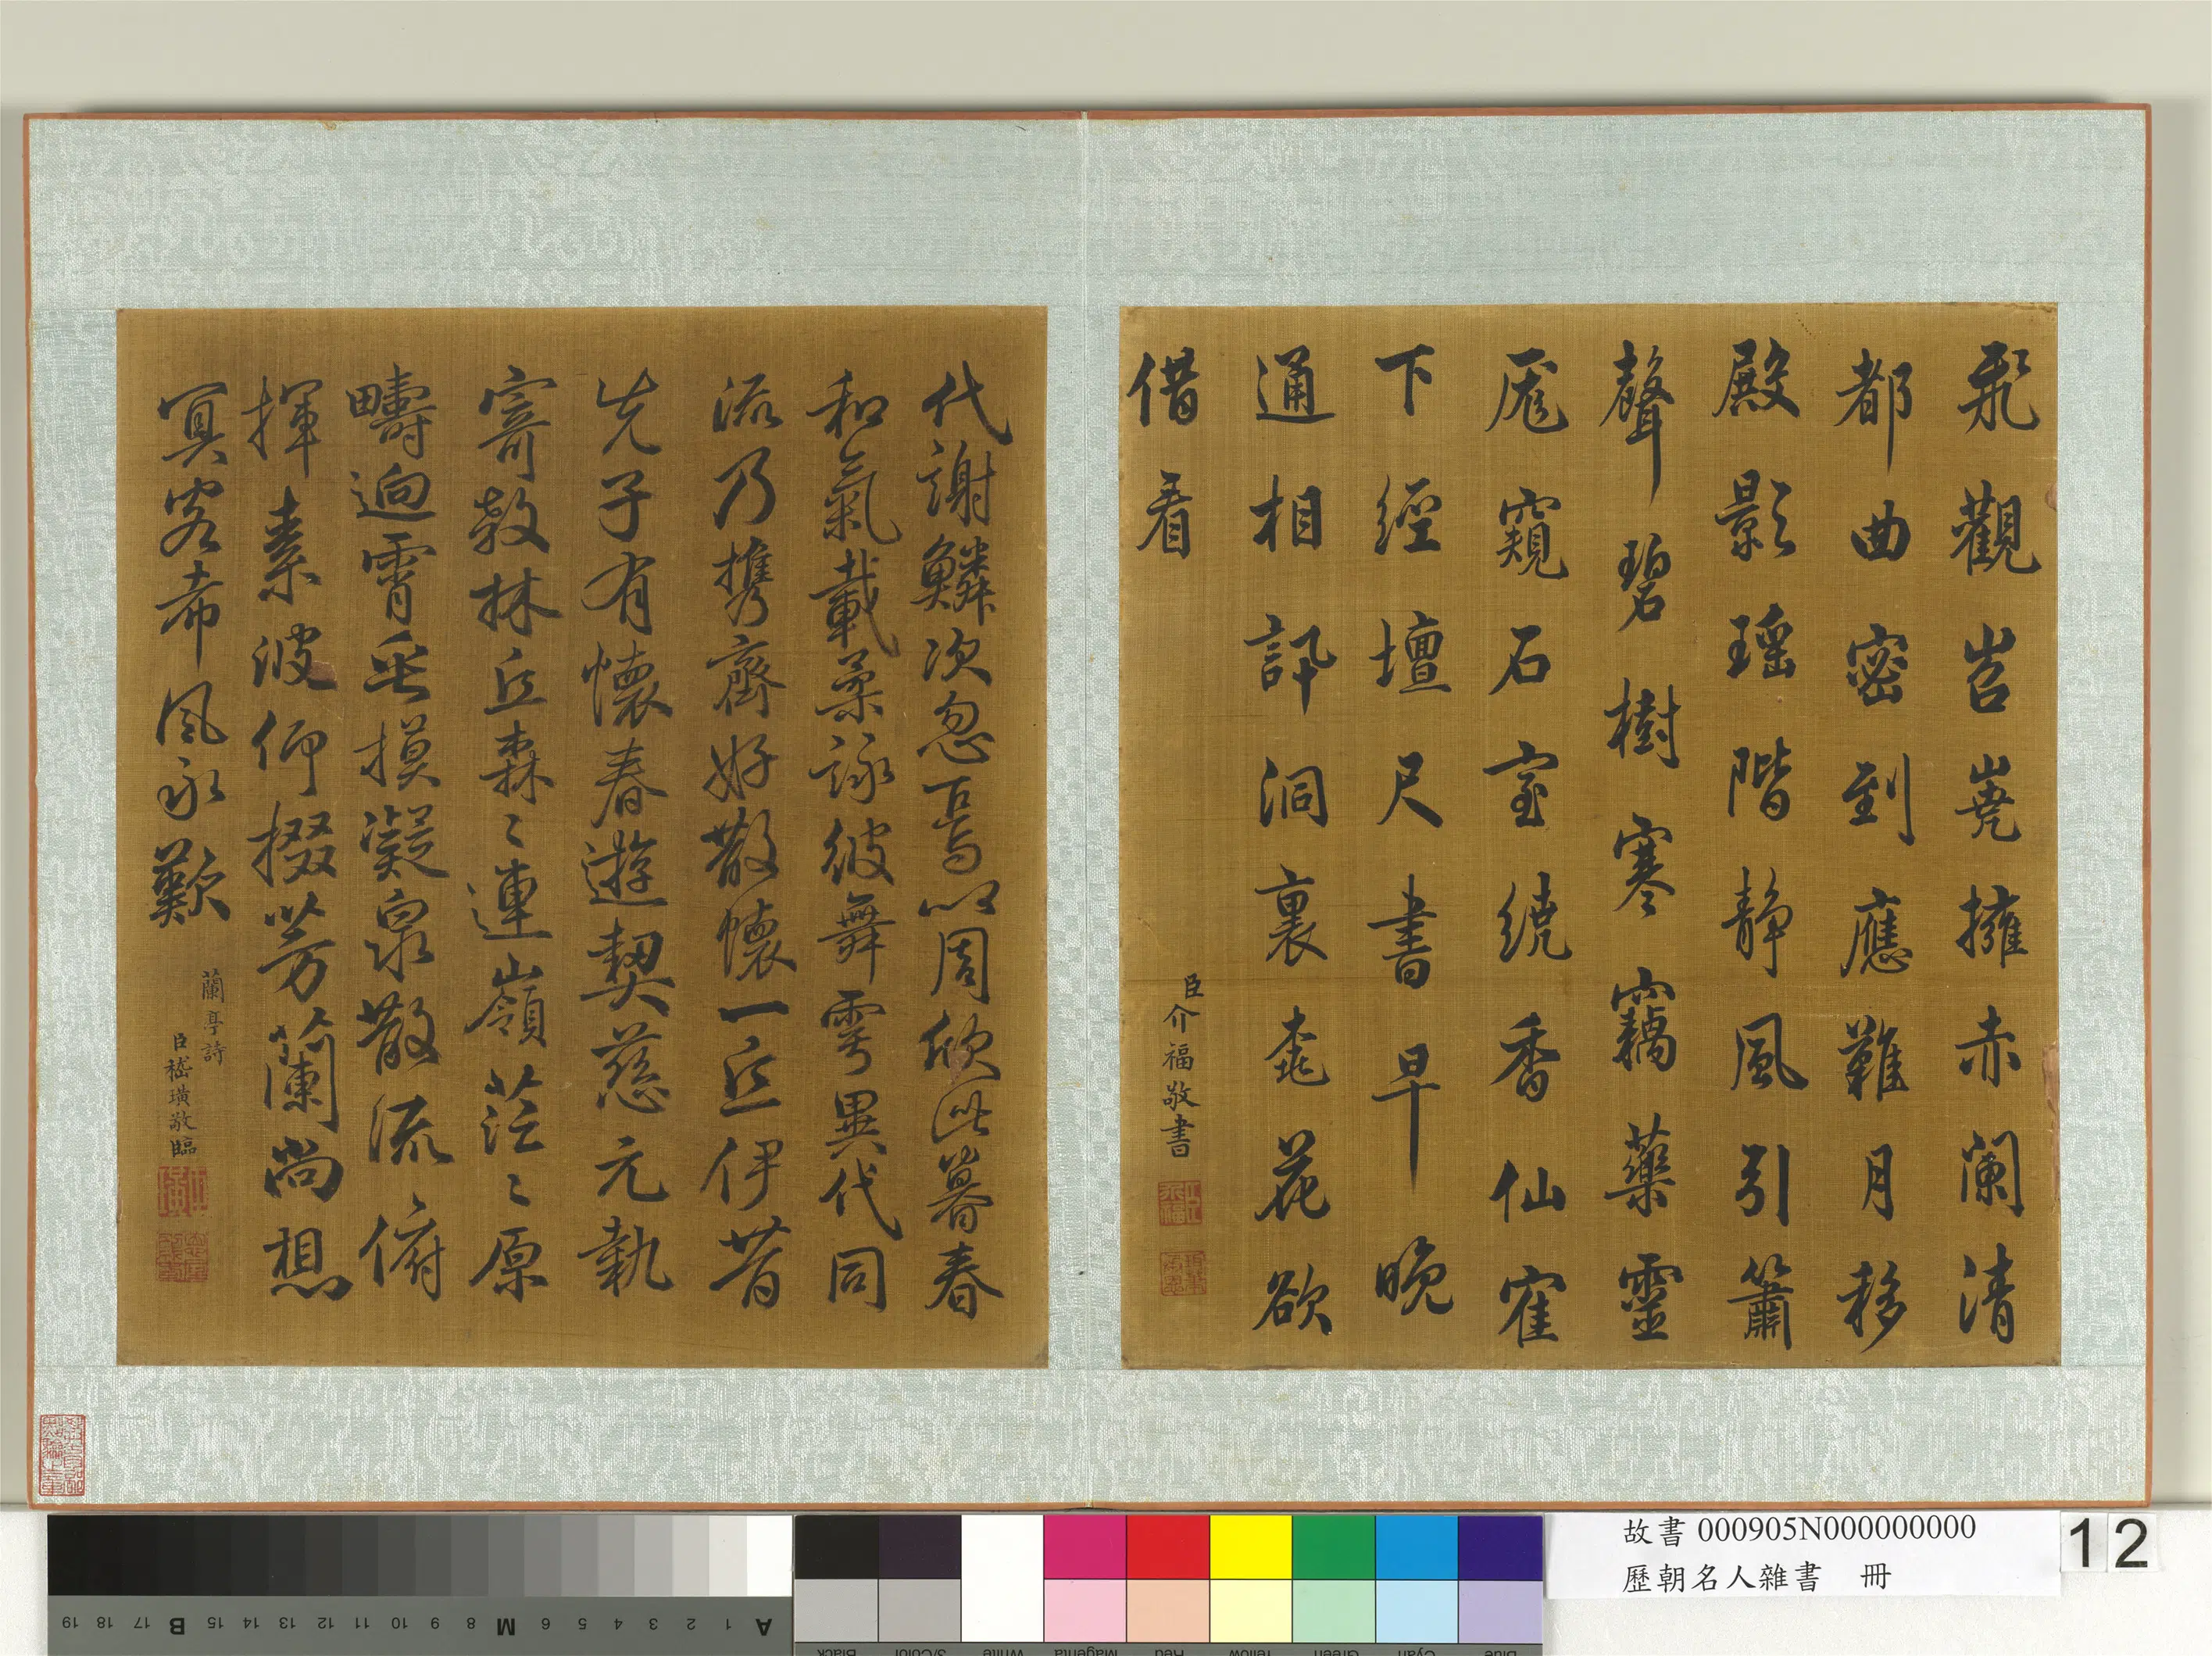 飛觀岧嶤擁赤闌清
都曲密到應難月移
殿影瑤階靜風引簫
聲碧樹寒竊藥靈
厖窺石室繞香仙寉
下經壇尺書早晚
通相訊洞裏桃花欲
借看
臣介福敬書
代謝鱗次忽焉以周欣此暮春
和氣載柔詠彼舞雩異代同
流乃攜齊好散懷一丘伊昔
先子有懷春遊契茲言執
寄敖林丘森〻連嶺茫〻原
疇逈霄垂霧凝泉散流俯
揮素波仰掇芳蘭尚想
冥客希風永歎
蘭亭詩
臣嵇璜敬臨
故書 000905N000000000
歷朝名人雜書 冊
12
19 18 17 B 15 14 13 12 11 10 9 8 M 6 5 4 3 2 1 A
Black 3/Color White Magenta Red Yellow Green Cyan Blue